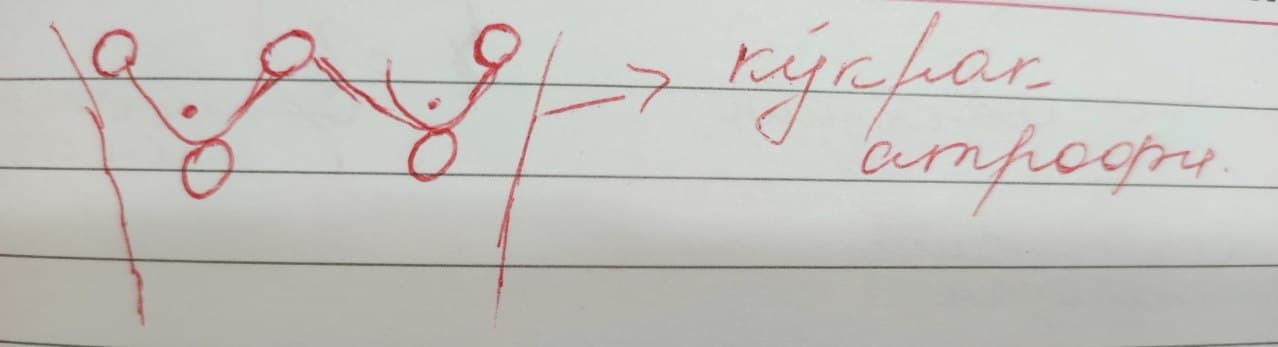 кўкрак
атрофи.